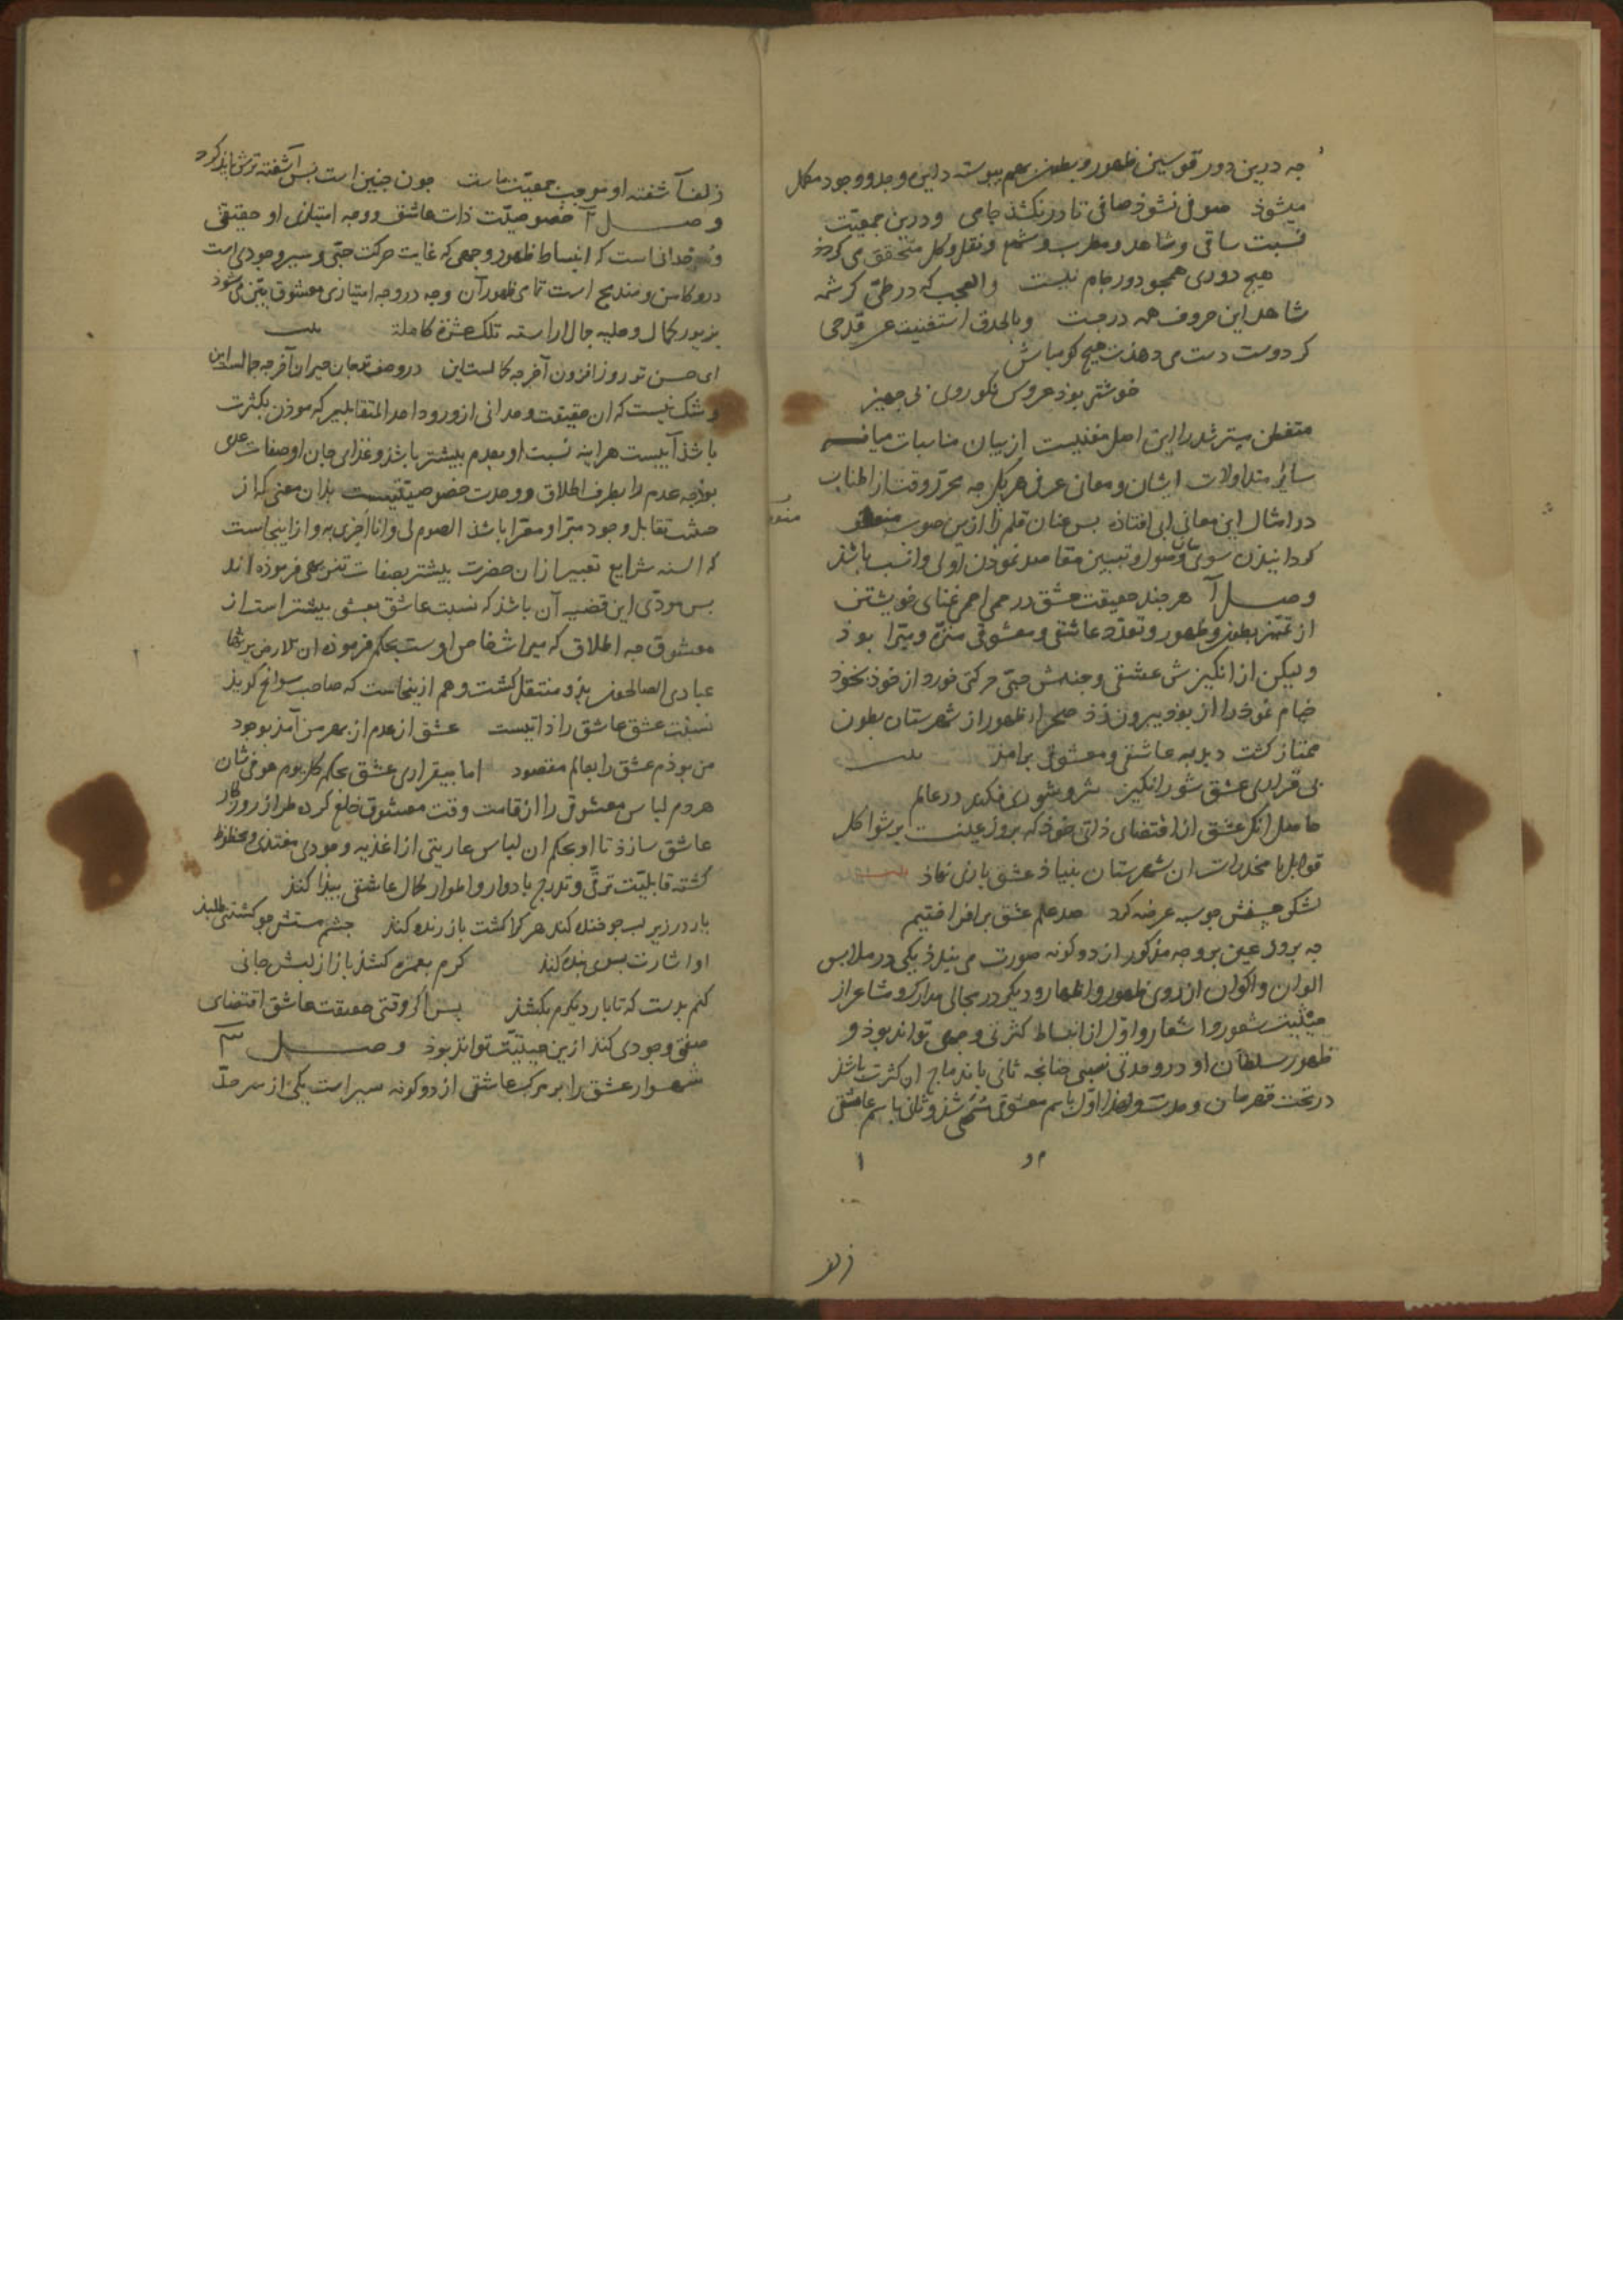 چه درین دور قوسین ظهور و بطون بهم پیوسته داین وجد و وجود مکمل
میشوذ صوفی نشوذ صافی تا در نکشذ جامی و درین جمعیّت
نسبت ساقی و شاهد و مطرب و شمع و نقل و کل متحقق می کردد
هیچ دوری همجو دور جام نیست والعجب که در طیّ کرشمه
شاهد این حروف همه درجست وبالحدق استغنیت عن قدحی
کر دوست دست می دهذت هیچ کو مباش
خوشتر بوذ عروس نکوروی بی جهیز
متفطن مسترشد را این اصل مغنیست از بیان مناسبات میانه
سائر متداولات ایشان و معانی عرفی هر یک چه محرز وقت از اطناب
در امثال این معانی ابی افتاذه بس عنان قلم را ازین صوب منعطف
کردانیدن سوی بیان وصول و تبیین مقاصد نموذن اولی و انسب باشذ
وصل آ هرچند حقیقت عشق در حمی احمی غنای خویشتن
از تمیّز بطون و ظهور و تعدّد عاشقی و معشوقی منزّه و مبّرا بوذ
ولیکن از انکیزش عشقی و جنبش حبّی حرکتی خورد از خوذ بخوذ
خیام نموذ را از بوذ بیرون زذ صحراء ظهور از شهرستان بطون
ممتاز کشت دبدبه عاشقی و معشوقی برامذ بیت
بی قراری عشق شورانکیز شر و شوری فکند در عالم
حاصل انکه عشق از اقتضای ذاتی خوذ که بروز عینست بر شواکل
قوابل با مخدرات ان شهرستان بنیاذ عشق بازی نهاذ بیت
لشکر حسنش چو سپه عرضه کرد صد علم عشق برافراختیم
چه بروز عین بر وجه مذکور از دو کونه صورت می بندذ یکی در ملابس
الوان و اکوان از روی ظهور و اظهار و دیکر در مجالی مدارک و مشاعر از
حیثیت شعور و اشعار و اوّل از انبساط کثرتی وجهی تواند بوذ و
ظهور سلطان او در وحدتی نعینی چنانچه ثانی باندماج ان کثرت باشذ
در تحت قهرمان وحدت و لهذا اوّل باسم معشوقی مسمّی شذ و ثانی باسم عاشقی
زلف
زلف آشفته او موجب جمعیّت ماست چون چنین است بس آشفته ترش بایذ کرد
وصل آ خصوصیّت ذات عاشق و وجه امتیازی او حقیقتی
وحدانی است که انبساط ظهور وجهی که غایت حرکت حبّی و سیر وجودی است
درو کامن و مندمج است تمامی ظهور آن وجه در وجه امتیازی معشوق مبیّن می شوذ
بزیور کمال و حلیه جمال اراسته تلک عشرة کاملة بیت
ای حسن تو روز افزون آخر چه کمالست این در وصف تو جان حیران آخر چه جمالست این
و شک نیست که ان حقیقت وحدانی از ورود احد المتقابلین که موذن بکثرت
باشذ آبیست هراینه نسبت او بعدم بیشتر باشذ و غذای جان او صفات عدمی
بوذ چه عدم را بطرف اطلاق و وحدت خصوصیّتیست بذان معنی که از
حیثیت تقابل وجود مبّرا و معّرا باشذ الصوم لی و انا اجزی به و از اینجاست
که السنه شرایع تعبیر از ان حضرت بیشتر بصفات تنزیهی فرموذه اند
بس مودّی این قضیه آن باشذ که نسبت عاشق بعشق بیشتر است از
معشوق چه اطلاق که میراث خاص اوست بحکم فرموذه ان الارض یرثها
عبادی الصالحون بذو منتقل کشت و هم ازینجاست که صاحب سوانح کویذ
نسبت عشق عاشق را ذاتیست عشق از عدم از بهر من آمذ بوجود
من بوذم عشق را بعالم مقصود اما بیقراری عشق بحکم کل یوم هو فی شان
هر دم لباس معشوقی را از قامت وقت معشوق خلع کرده طراز روزکار
عاشق سازذ تا او بحکم ان لباس عاریتی از اغذیه وجودی مغتذی و محظوظ
کشته قابلیّت ترقّی و تدرج بادوار و اطوار کمال عاشقی بیذا کنذ
یار در زیر لب چو خنده کند هر کرا کشت باز زنده کنذ چشم مستش چو کشتنی طلبذ
او اشارت بسوی بنده کنذ کرم بغمزه کشذ باز از لبش جانی
کنم بدست که تا بار دیکرم بکشذ بس اکر وقتی حقیقت عاشق اقتضای
صفتی وجودی کنذ ازین حیثیّت تواند بوذ وصل ۳
شهسوار عشق را بر مرکب عاشقی از دو کونه سیر است یکی از سرحدّ